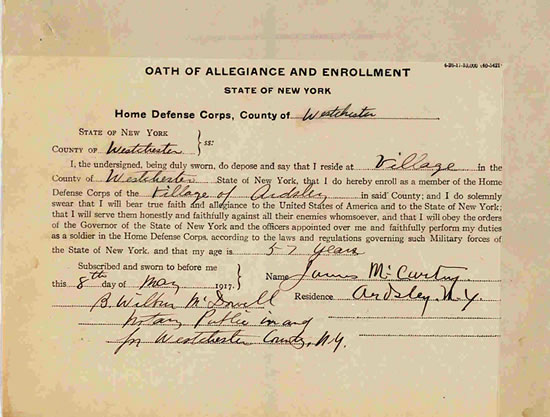 4-26-17-15,000
OATH OF ALLEGIANCE AND ENROLLMENT
STATE OF NEW YORK
Home Defense Corps, County of Westchester
STATE OF NEW YORK
COUNTY OF Westchester } ss:
I, the undersigned, being duly sworn, do depose and say that I reside at Village in the
County of Westchester State of New York, that I do hereby enroll as a member of the Home
Defense Corps of the Village of Ardsley in said County; and I do solemnly
swear that I will bear true faith and allegiance to the United States of America and to the State of New York;
that I will serve them honestly and faithfully against all their enemies whomsoever, and that I will obey the orders
of the Governor of the State of New York and the officers appointed over me and faithfully perform my duties
as a soldier in the Home Defense Corps, according to the laws and regulations governing such Military forces of
the State of New York, and that my age is 57 Years
Subscribed and sworn to before me
this 8th day of May 1917.
Name James McCartny
Residence Ardsley, N.Y.
B. Wilbur McDowell
Notary Public in and
for Westchester County, N.Y.